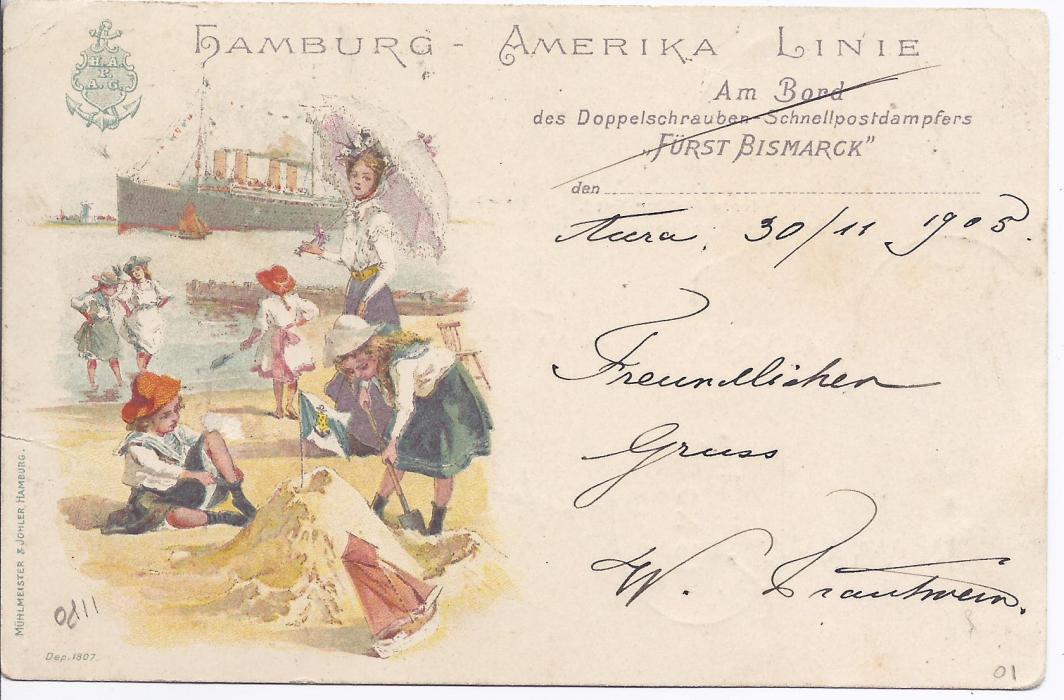 HAMBURG - AMERIKA LINIE
H.A.
P.
A.G.
Am Bord
des Doppelschrauben-Schnellpostdampfers
„FÜRST BISMARCK"
den
30/11 1905.
Freundlichen
Gruss
W. Trautwein.
MÜHLMEISTER & JOHLER, HAMBURG.
Dep. 1807.
01